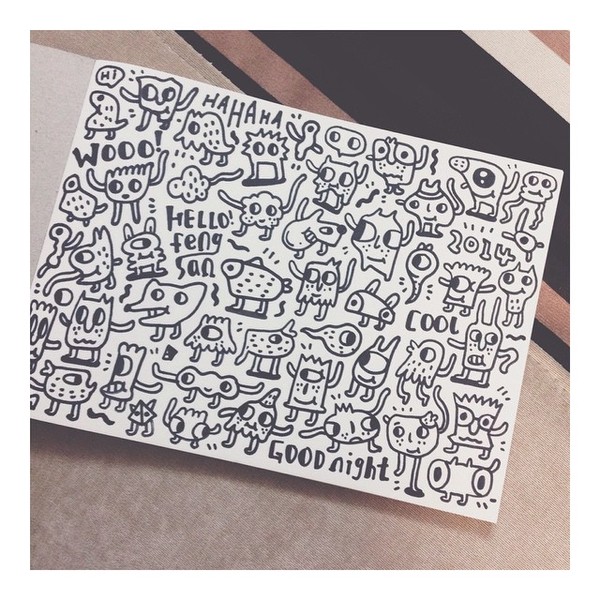 Hi
HAHAHA
WOOO!
HELLO!
feng
San
2014
COOL
GOOD night